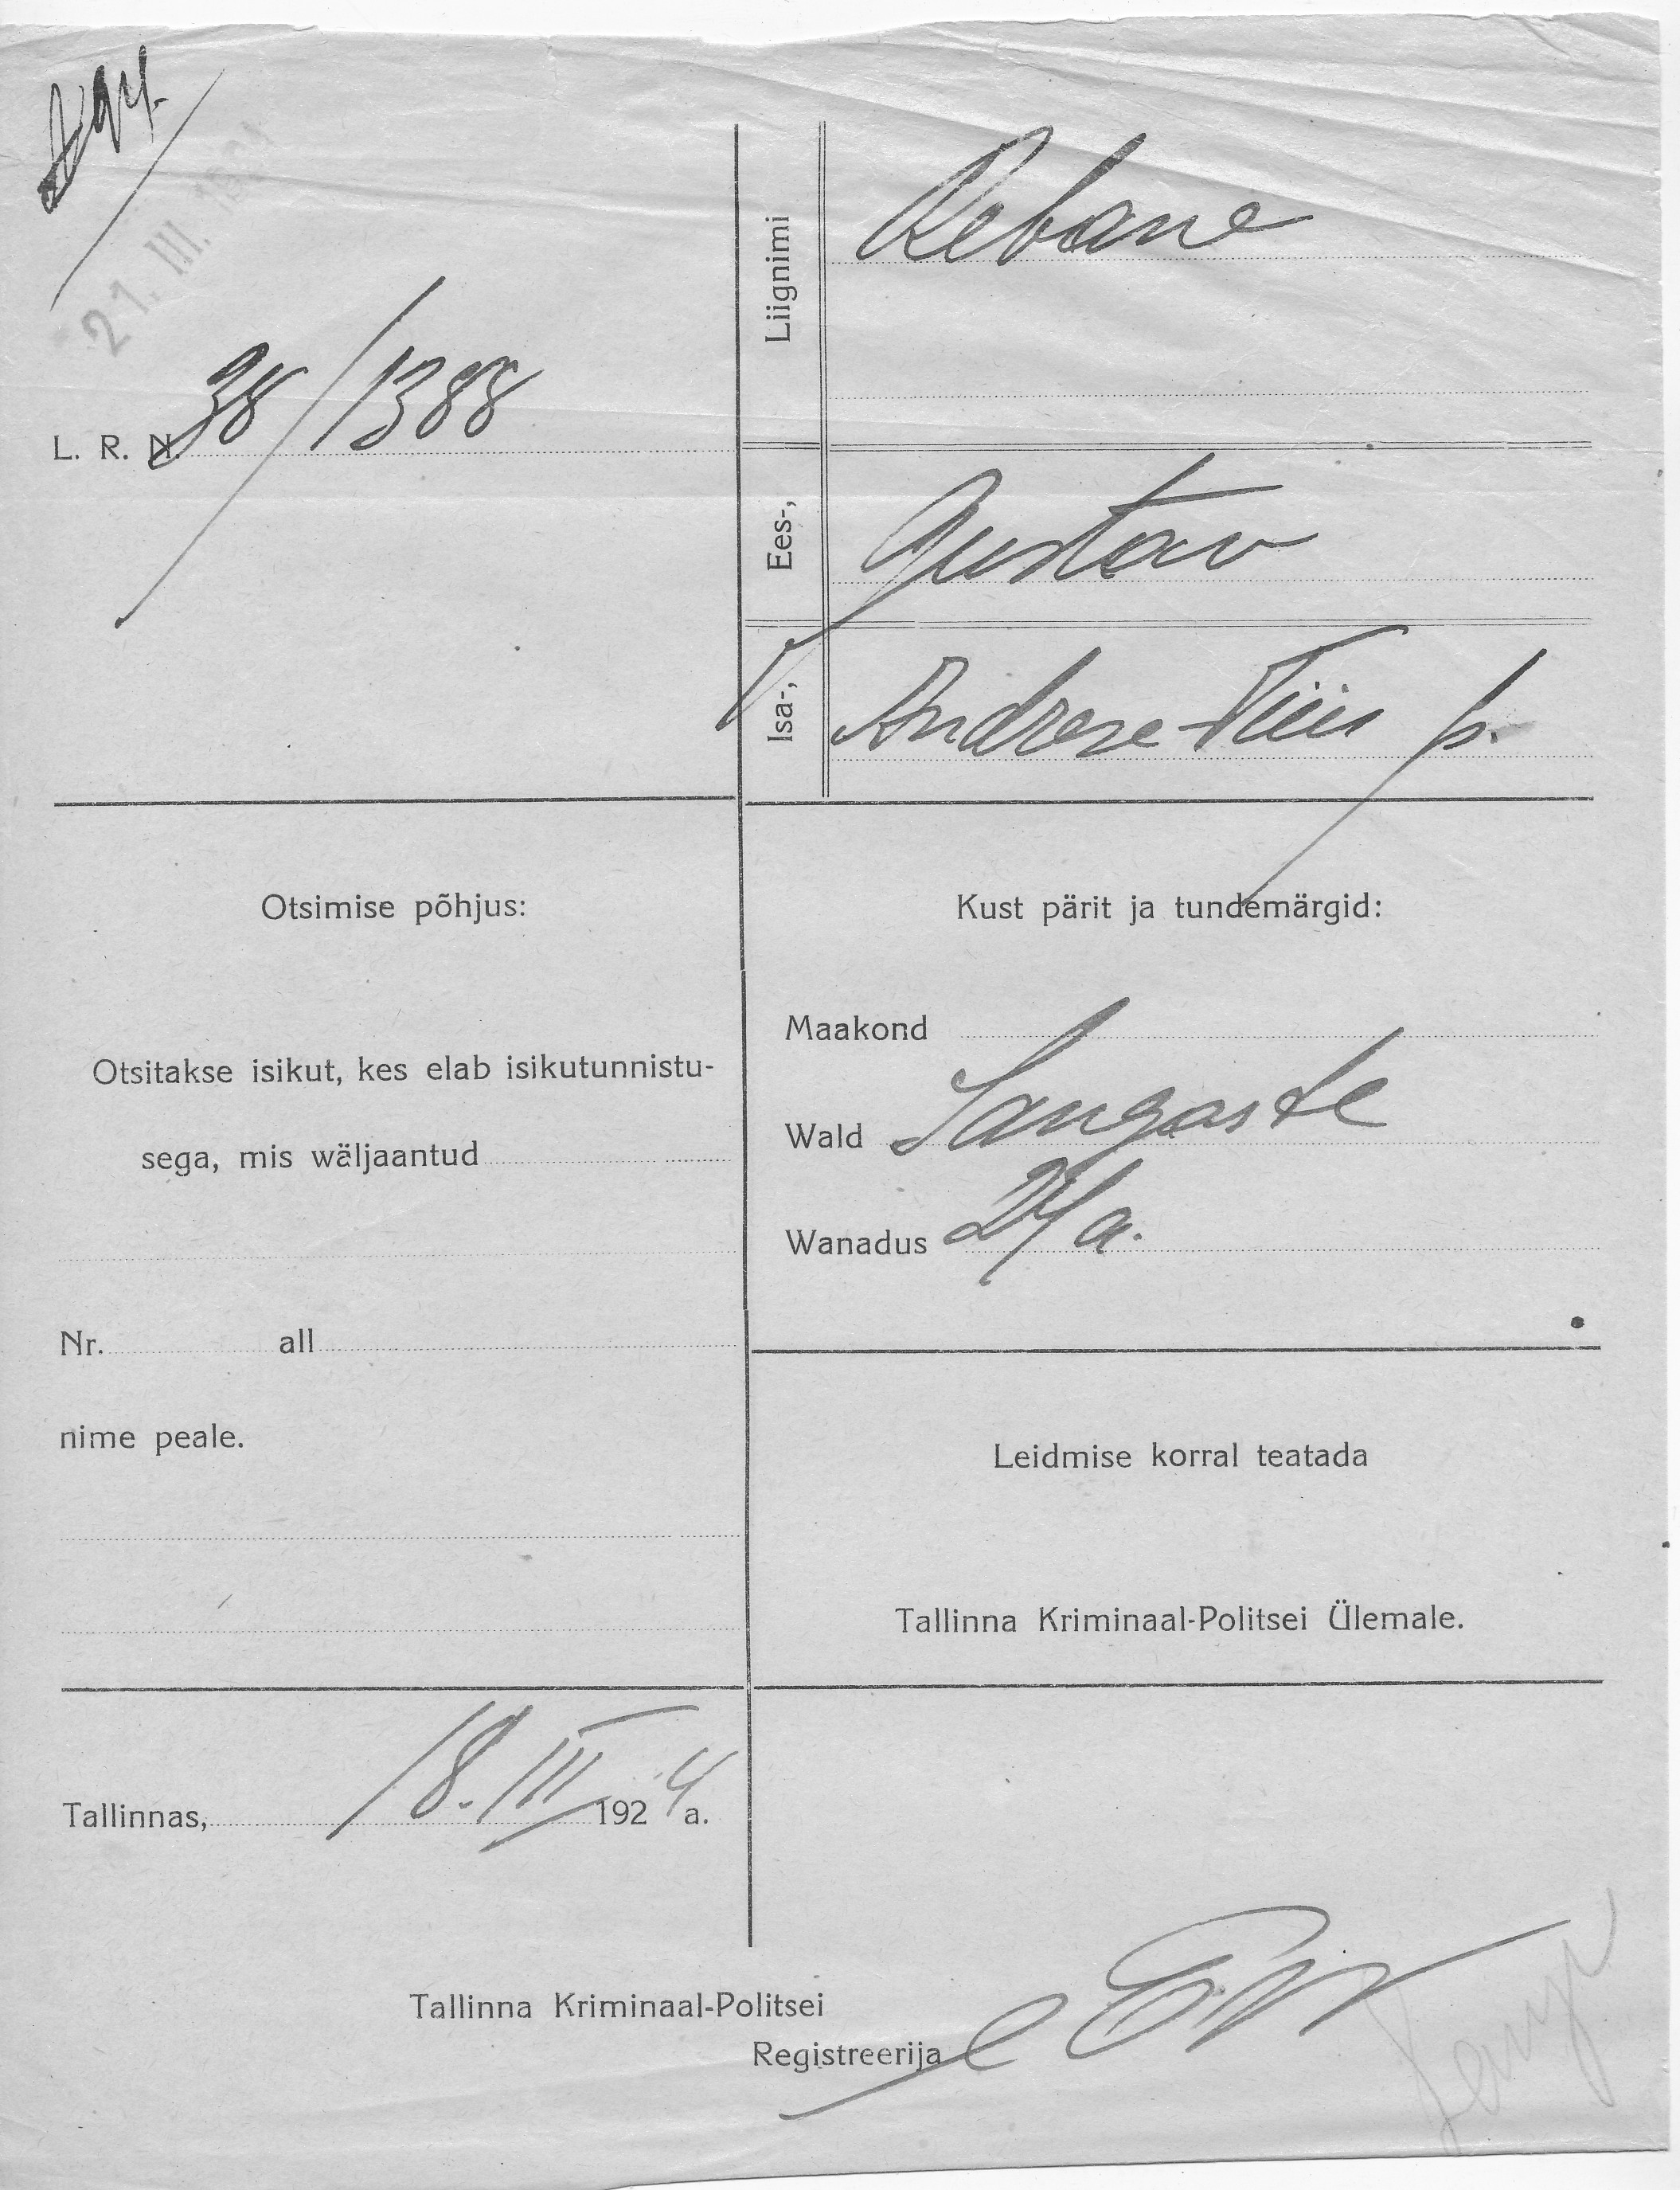 21. III. 1924
L. R. N. 38/1388
Liignimi Rebane
Ees-, Gustav
Isa-, Andrese-Tiiu p.
Otsimise põhjus:
Otsitakse isikut, kes elab isikutunnistu-
sega, mis wäljaantud
Nr. all
nime peale.
Kust pärit ja tundemärgid:
Maakond
Wald Sangaste
Wanadus 24 a.
Leidmise korral teatada
Tallinna Kriminaal-Politsei Ülemale.
Tallinnas, 18. III 1924 a.
Tallinna Kriminaal-Politsei
Registreerija